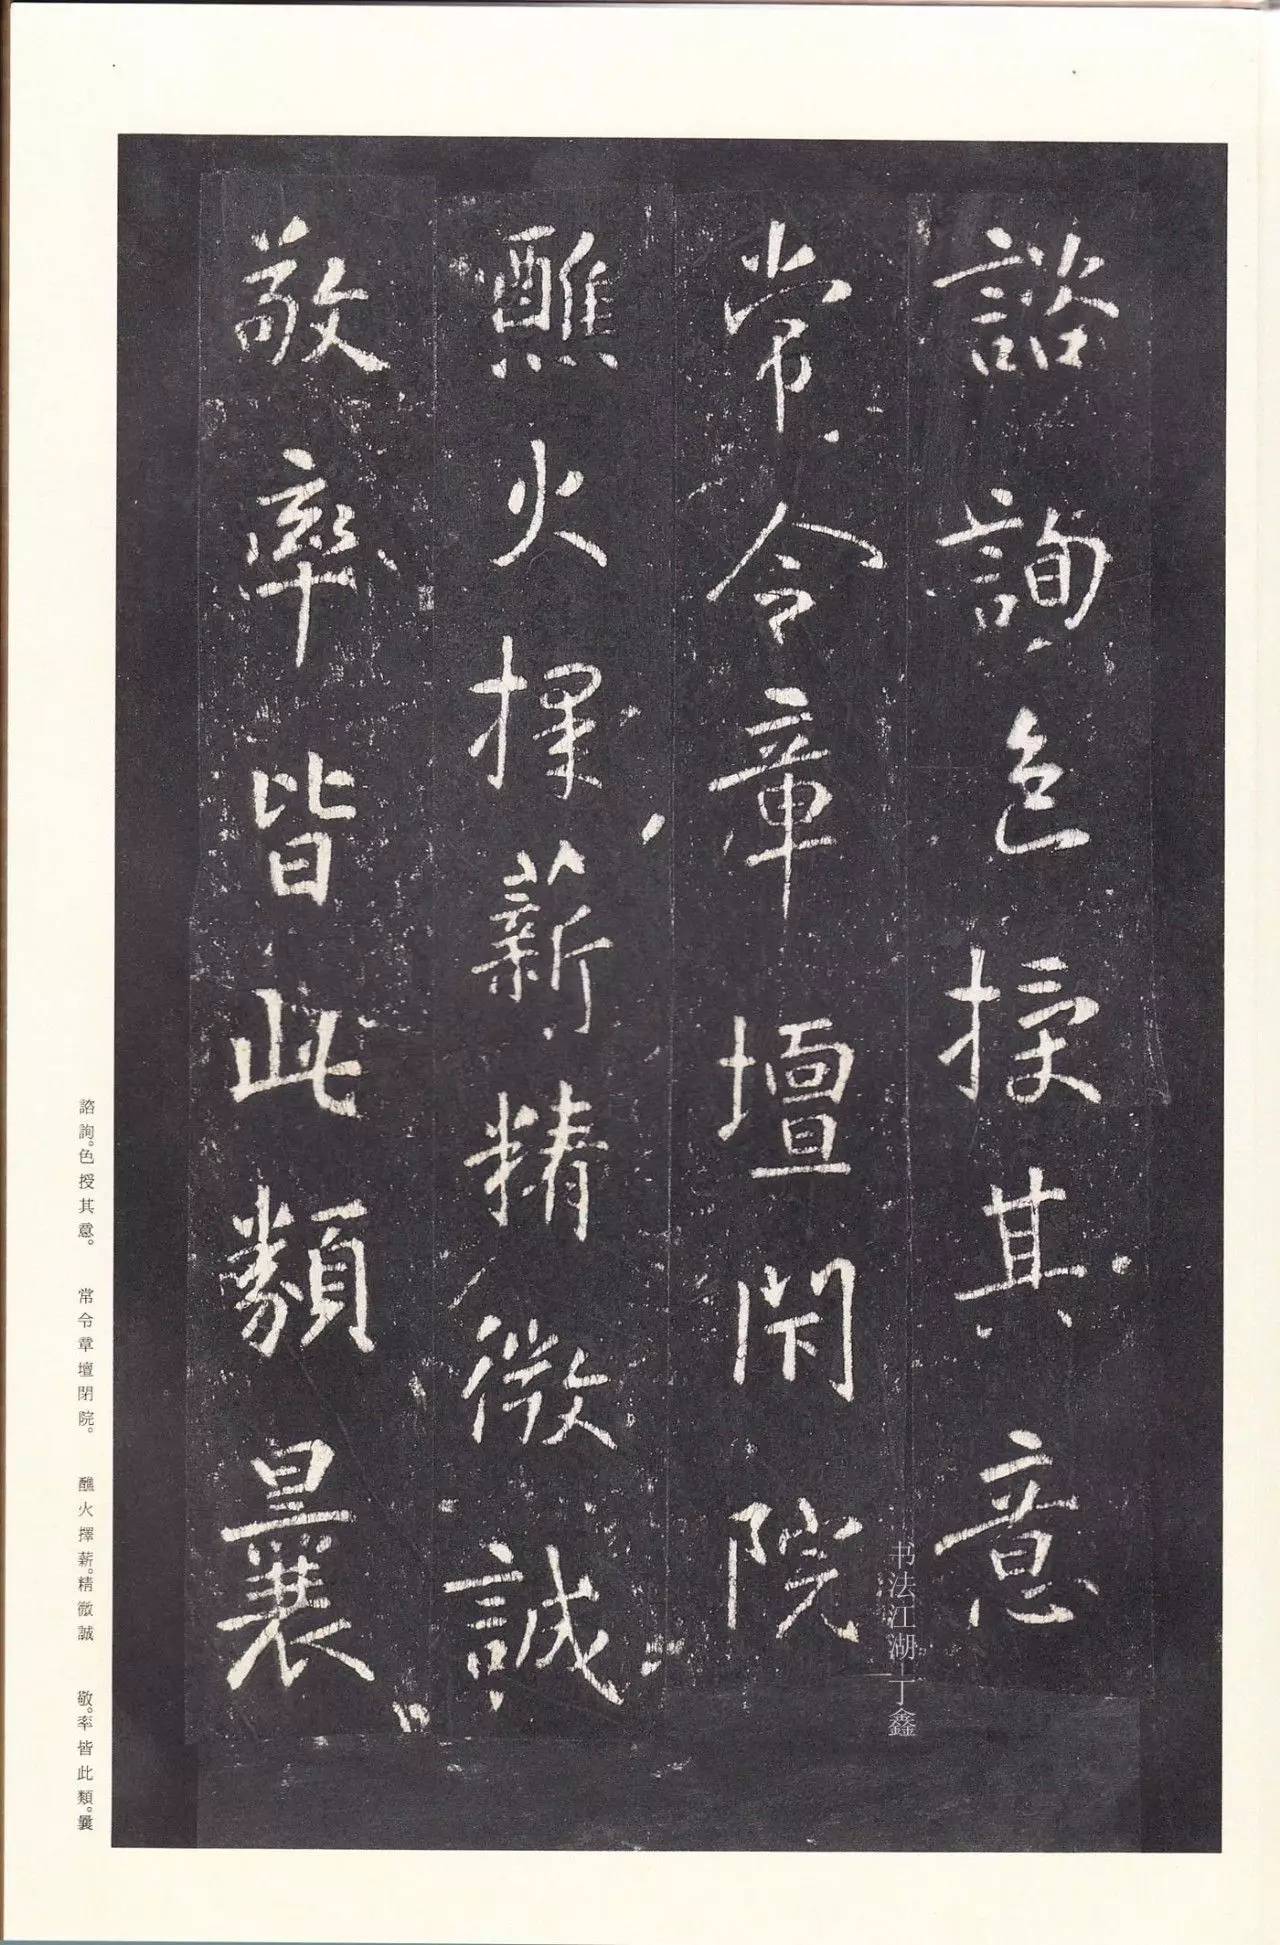 諮詢色授其意
常令章壇閉院
醮火擇薪精微誠
敬率皆此類曩
諮詢。色授其意。 常令章壇閉院。 醮火擇薪。精微誠 敬。率皆此類。曩
书法江湖—丁鑫